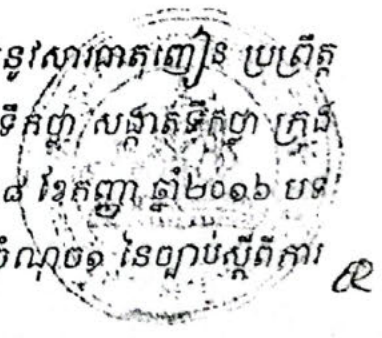 នូវសារធាតុញៀន ប្រព្រឹត្ត
ទឹកថ្លា សង្កាត់ទឹកថ្លា ក្រុង
៨ ខែកញ្ញា ឆ្នាំ២០១៦ បទ
ចំណុច១ នៃច្បាប់ស្តីពីការ